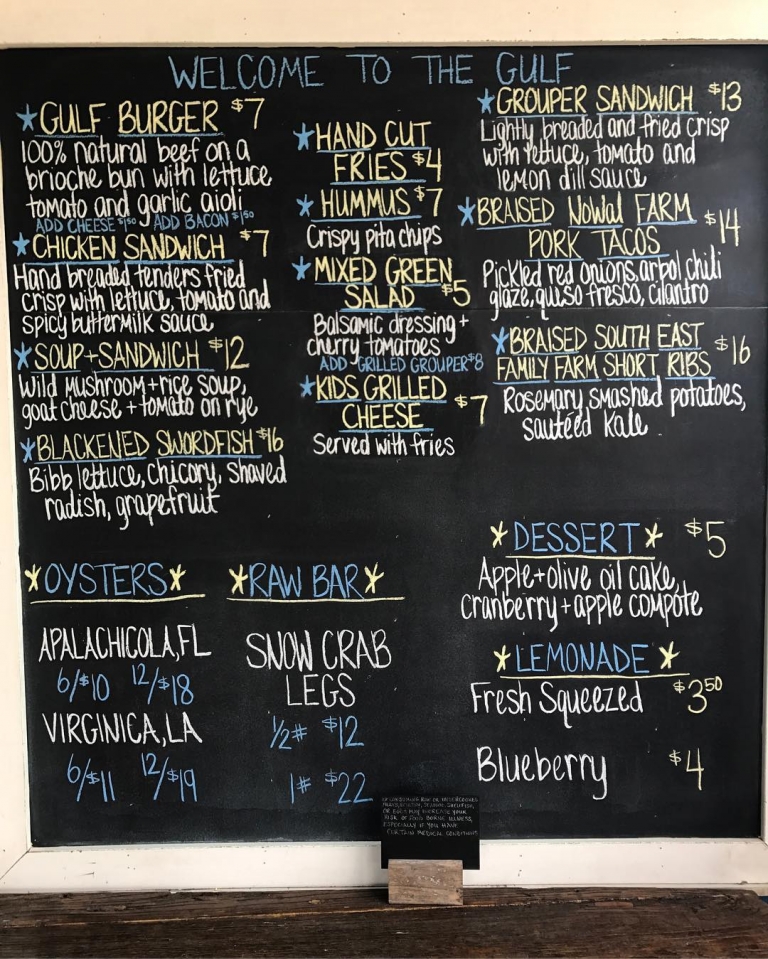 WELCOME TO THE GULF
GULF BURGER $7
100% natural beef on a
brioche bun with lettuce,
tomato and garlic aioli
ADD CHEESE $1.50 ADD BACON $1.50
CHICKEN SANDWICH $7
Hand breaded tenders fried
crisp with lettuce, tomato and
spicy buttermilk sauce
SOUP+SANDWICH $12
Wild mushroom+rice soup,
goat cheese + tomato on rye
BLACKENED SWORDFISH $16
Bibb lettuce, chicory, shaved
radish, grapefruit
HAND CUT
FRIES $4
HUMMUS $7
Crispy pita chips
MIXED GREEN
SALAD $5
Balsamic dressing +
cherry tomatoes
ADD GRILLED GROUPER $8
KIDS GRILLED
CHEESE $7
Served with fries
GROUPER SANDWICH $13
Lightly breaded and fried crisp
with lettuce, tomato and
lemon dill sauce
BRAISED NoWal FARM
PORK TACOS $14
Pickled red onions, arbol chili
glaze, queso fresco, cilantro
BRAISED SOUTH EAST
FAMILY FARM SHORT RIBS $16
Rosemary smashed potatoes,
sautéed kale
OYSTERS
APALACHICOLA, FL
6/$10 12/$18
VIRGINICA, LA
6/$11 12/$19
RAW BAR
SNOW CRAB
LEGS
1/2# $12
1# $22
DESSERT $5
Apple+olive oil cake,
cranberry+apple compote
LEMONADE
Fresh Squeezed $3.50
Blueberry $4
OR EGGS MAY INCREASE YOUR
RISK OF FOOD BORNE ILLNESS,
ESPECIALLY IF YOU HAVE
CERTAIN MEDICAL CONDITIONS